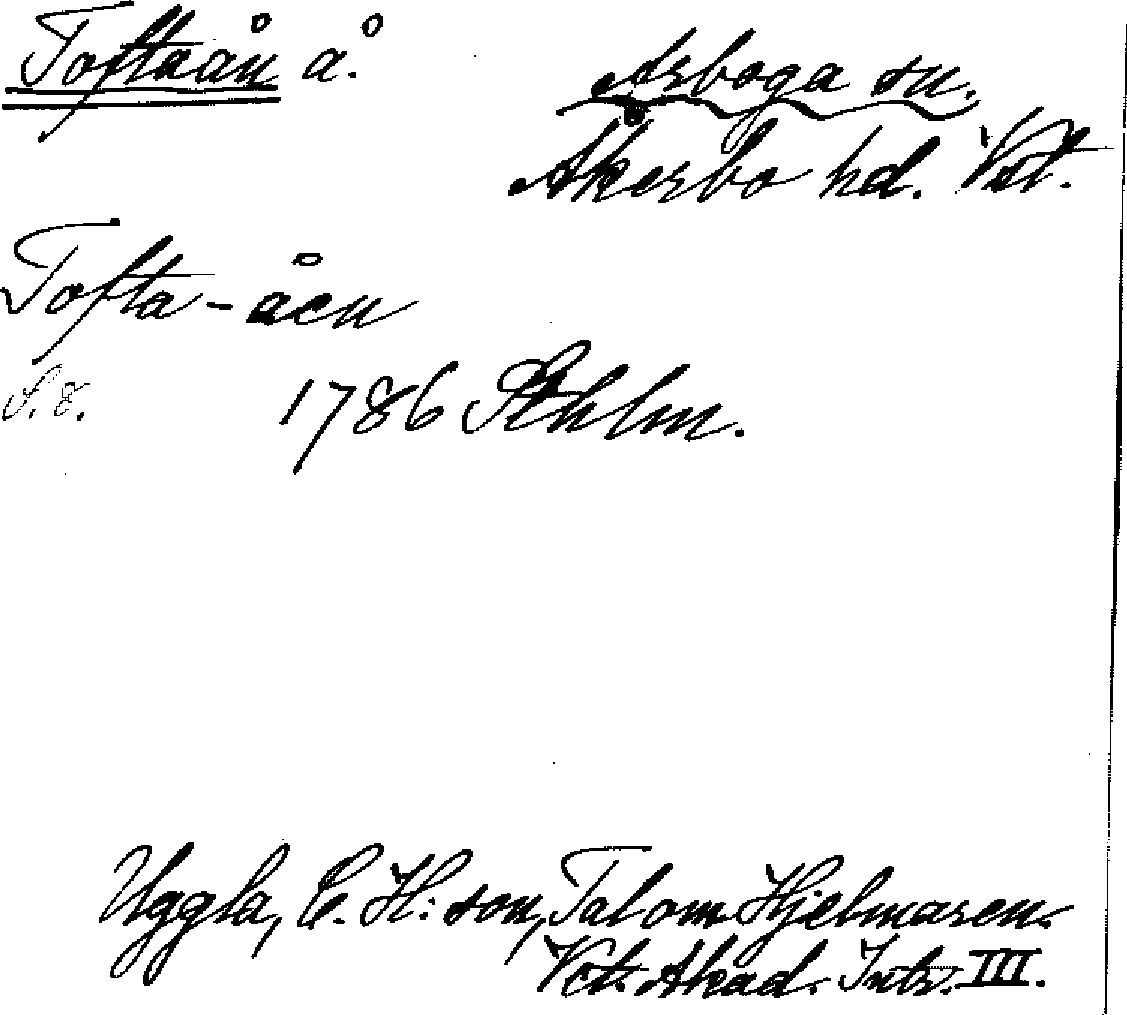 Toftaån å.
Arboga sn.
Åkerbo hd. Vstm.
Tofta-åen
S. 8. 1786 Sthlm.
Uggla, C. H:son, Tal om Hjelmaren.
Vet. Akad. Intr. III.